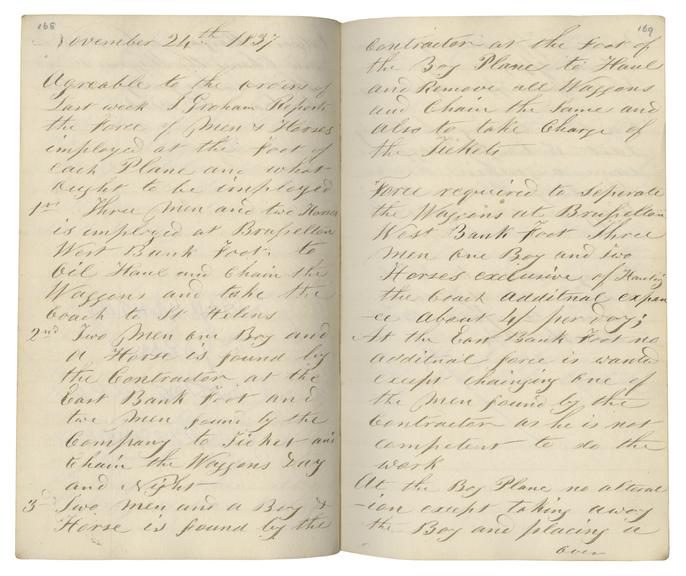 168
November 24th 1837
Agreable to the orders of
Last week J Graham Reports
the Force of Men & Horses
imployed at the Foot of
Each Plane and what
ought to be imployed
1st Three Men and two Horses
is employed at Brusselton
West Bank Foot to
Oil Haul and Chain the
Waggons and take the
Coach to St Helens
2nd Two Men one Boy and
a Horse is found by
the Contractor at the
East Bank Foot and
two Men found by the
Company to Ticket and
Chain the Waggons Day
and Night
3d Two Men and a Boy &
Horse is found by the
169
Contractor at the Foot of
the Bog Plane to Haul
and Remove all Waggons
and Chain the Same and
also to take Charge of
the Tickets
Force required to seperate
the Waggons at Brusselton
West Bank Foot Three
Men One Boy and two
Horses exclusive of Hauling
the Coach additnal expen
-ce About 4/ per day;
At the East Bank Foot no
additnal force is wanted
except changing one of
the Men found by the
Contractor as he is not
competent to do the
work
At the Bog Plane no alterat
-ion except taking away
the Boy and placing a
Over